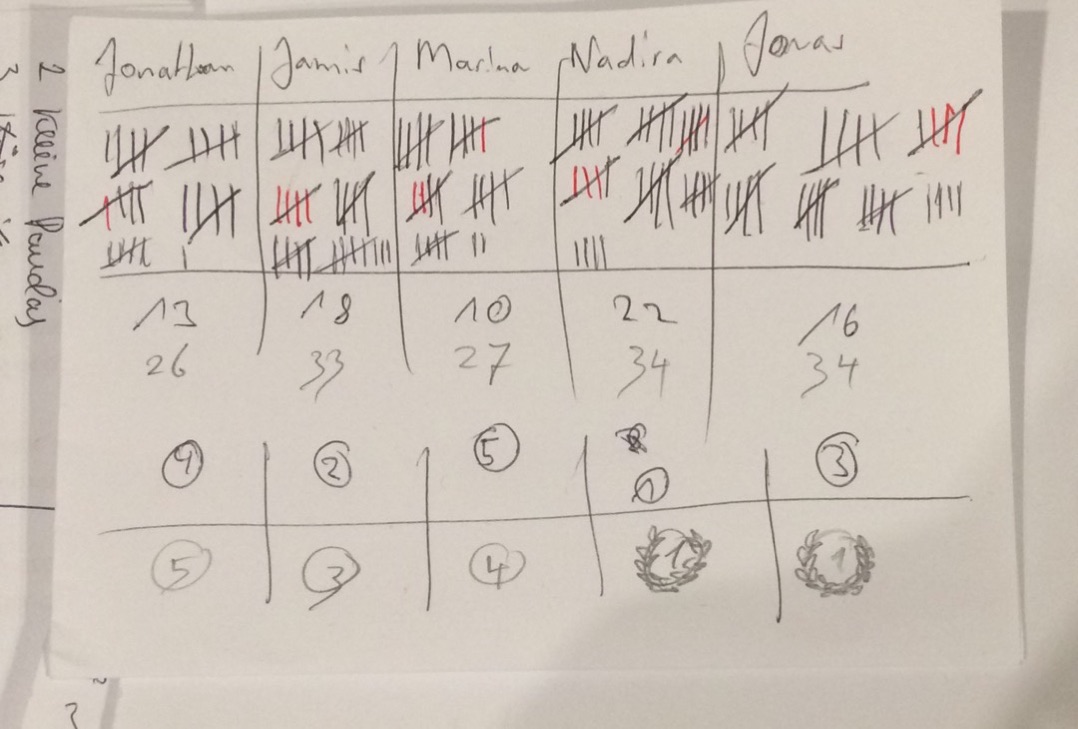 Jonathan Jamis Marina Nadira Jonas
13 18 10 22 16
26 33 27 34 34
4 2 5 1 3
5 3 4 1 1
2
3
3